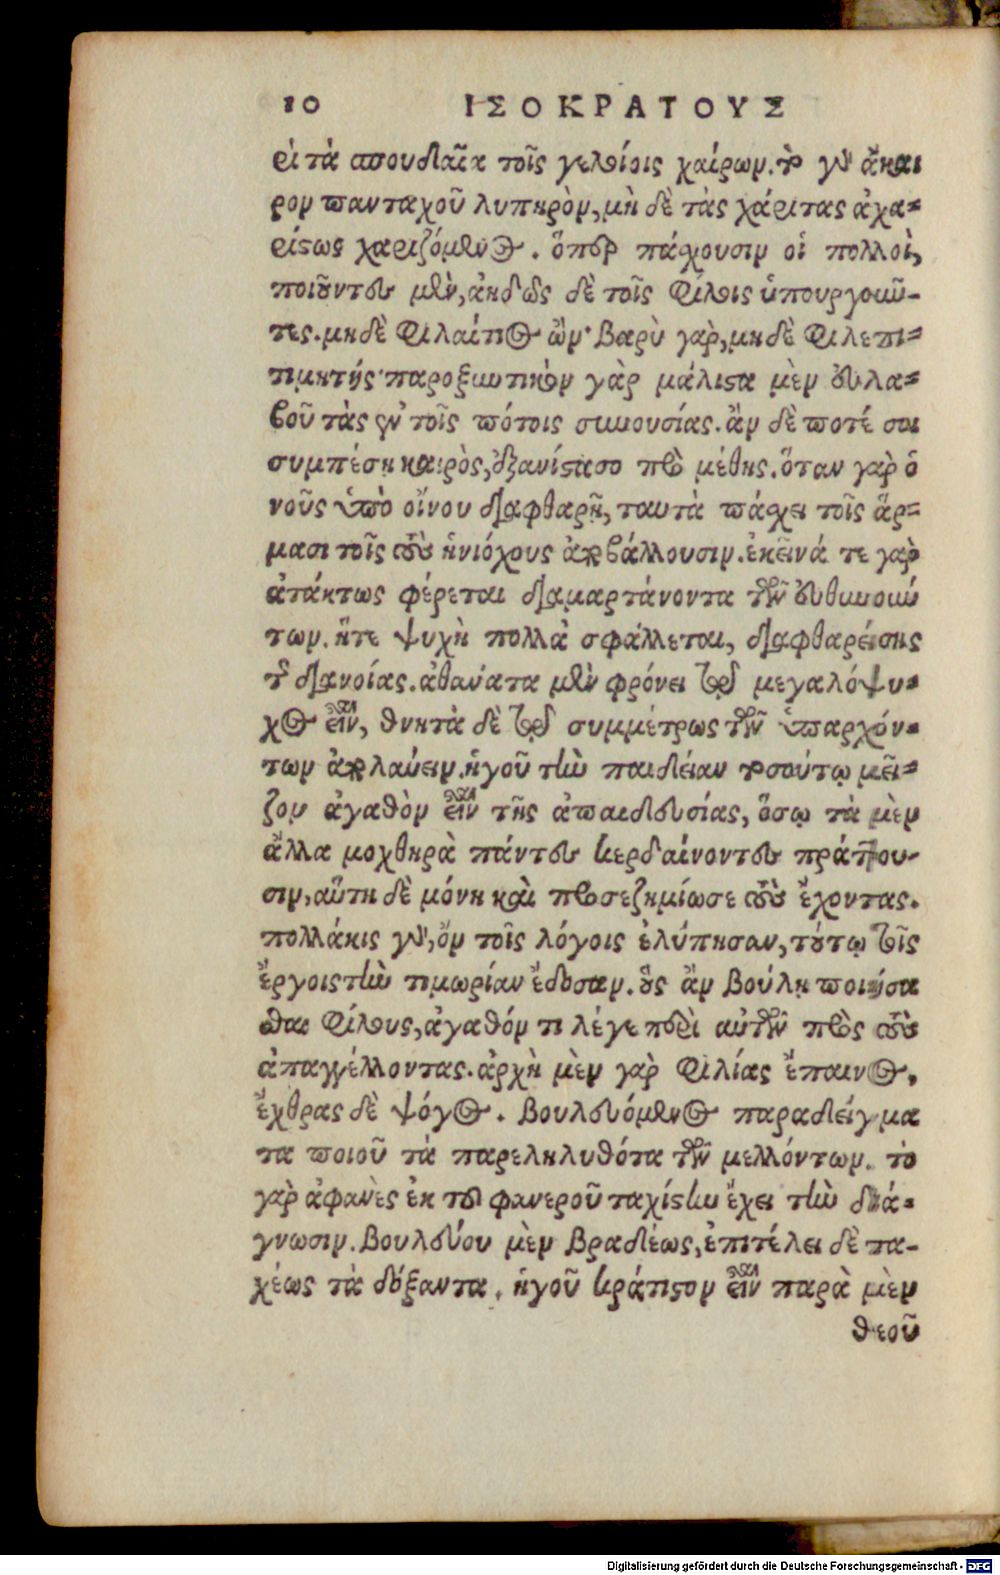 10 ΙΣΟΚΡΑΤΟΥΣ
ρὶ τὰ σπουδαῖα τοῖς γελοίοις χαίρων. τὸ γὰρ ἄκαι
ρον πανταχοῦ λυπηρὸν, μὴ δὲ τὰς χάριτας ἀχα-
ρίστως χαριζόμενος. ὅπερ πάσχουσιν οἱ πολλοὶ,
ποιοῦντες μὲν, ἀηδῶς δὲ τοῖς φίλοις ὑπουργοῦν-
τες. μηδὲ φιλαίτιος ὢν· βαρὺ γὰρ, μηδὲ φιλεπι-
τιμητής· παροξυντικὸν γὰρ μάλιστα μὲν εὐλα-
βοῦ τὰς ἐν τοῖς πότοις συνουσίας. ἂν δὲ ποτέ σοι
συμπέσῃ καιρὸς, ἐξανίστασο πρὸ μέθης. ὅταν γὰρ ὁ
νοῦς ὑπὸ οἴνου διαφθαρῇ, ταυτὰ πάσχει τοῖς ἅρ-
μασι τοῖς τοὺς ἡνιόχους ἀποβάλλουσιν. ἐκεῖνά τε γὰρ
ἀτάκτως φέρεται διαμαρτάνοντα τῶν εὐθυνούν
των. ἥτε ψυχὴ πολλὰ σφάλλεται, διαφθαρείσης
τῆς διανοίας. ἀθανάτα μὲν φρόνει τῷ μεγαλόψυ-
χος εἶναι, θνητὰ δὲ τῷ συμμέτρως τῶν ὑπαρχόν-
των ἀπολαύειν. ἡγοῦ τὴν παιδείαν τοσούτῳ μεῖ-
ζον ἀγαθὸν εἶναι τῆς ἀπαιδευσίας, ὅσῳ τὰ μὲν
ἄλλα μοχθηρὰ πάντες κερδαίνοντες πράττου-
σιν, αὕτη δὲ μόνη καὶ προσεζημίωσε τοὺς ἔχοντας.
πολλάκις γὰρ, ὃν τοῖς λόγοις ἐλύπησαν, τούτῳ τοῖς
ἔργοις τὴν τιμωρίαν ἔδοσαν. οὓς ἂν βούλῃ ποιήσα
σθαι φίλους, ἀγαθόν τι λέγε περὶ αὐτῶν πρὸς τοὺς
ἀπαγγέλλοντας. ἀρχὴ μὲν γὰρ φιλίας ἔπαινος,
ἔχθρας δὲ ψόγος. βουλευόμενος παραδείγμα
τα ποιοῦ τὰ παρεληλυθότα τῶν μελλόντων. τὸ
γὰρ ἀφανὲς ἐκ τοῦ φανεροῦ ταχίστην ἔχει τὴν διά-
γνωσιν. βουλεύου μὲν βραδέως, ἐπιτέλει δὲ τα-
χέως τὰ δόξαντα. ἡγοῦ κράτιστον εἶναι παρὰ μὲν
θεοῦ
Digitalisierung gefördert durch die Deutsche Forschungsgemeinschaft - DFG